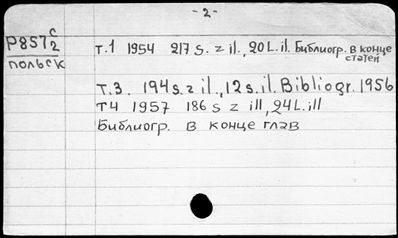 - 2 -
Р857 с/2
польск
т.1 1954 217 s. z il., 20 L. il. Библиогр. в конце статей
т.3. 194 s. z il., 12 s. il. Bibliogr. 1956
т4 1957 186 s z ill, 24L. ill
Библиогр. в конце глав